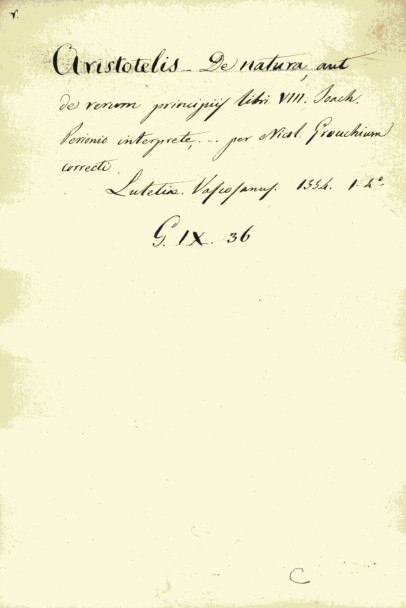 v.
Aristotelis - De natura, aut
de rerum principiis libri VIII. Joach.
Perionio interprete, ... per Nicol. Grouchium
correcti
Lutetiæ. Vascosanus. 1554. 1. 4º
G. IX. 36
C